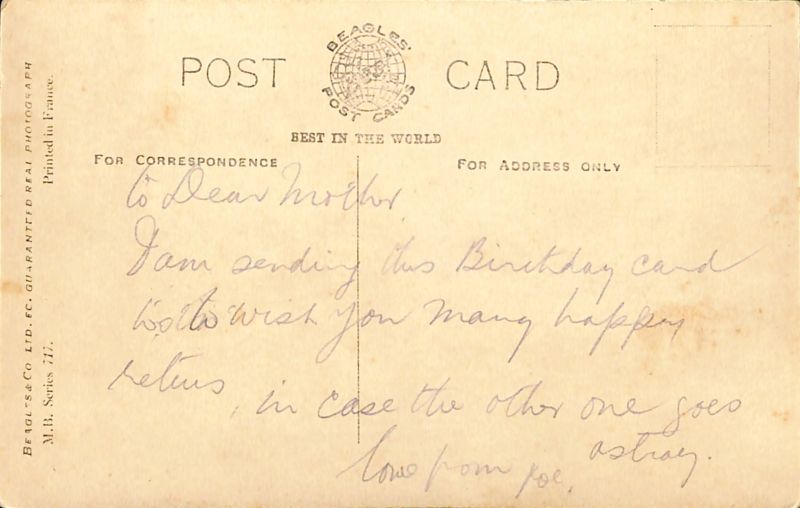 BEAGLES'
POST CARD
POST CARDS
BEST IN THE WORLD
FOR CORRESPONDENCE
FOR ADDRESS ONLY
to Dear Mother
I am sending this Birthday card
to wish you many happy
returns, in case the other one goes
astray.
love from Joe.
BEAGLES & CO. LTD. EC. GUARANTEED REAL PHOTOGRAPH
Printed in France.
M.B. Series 717.